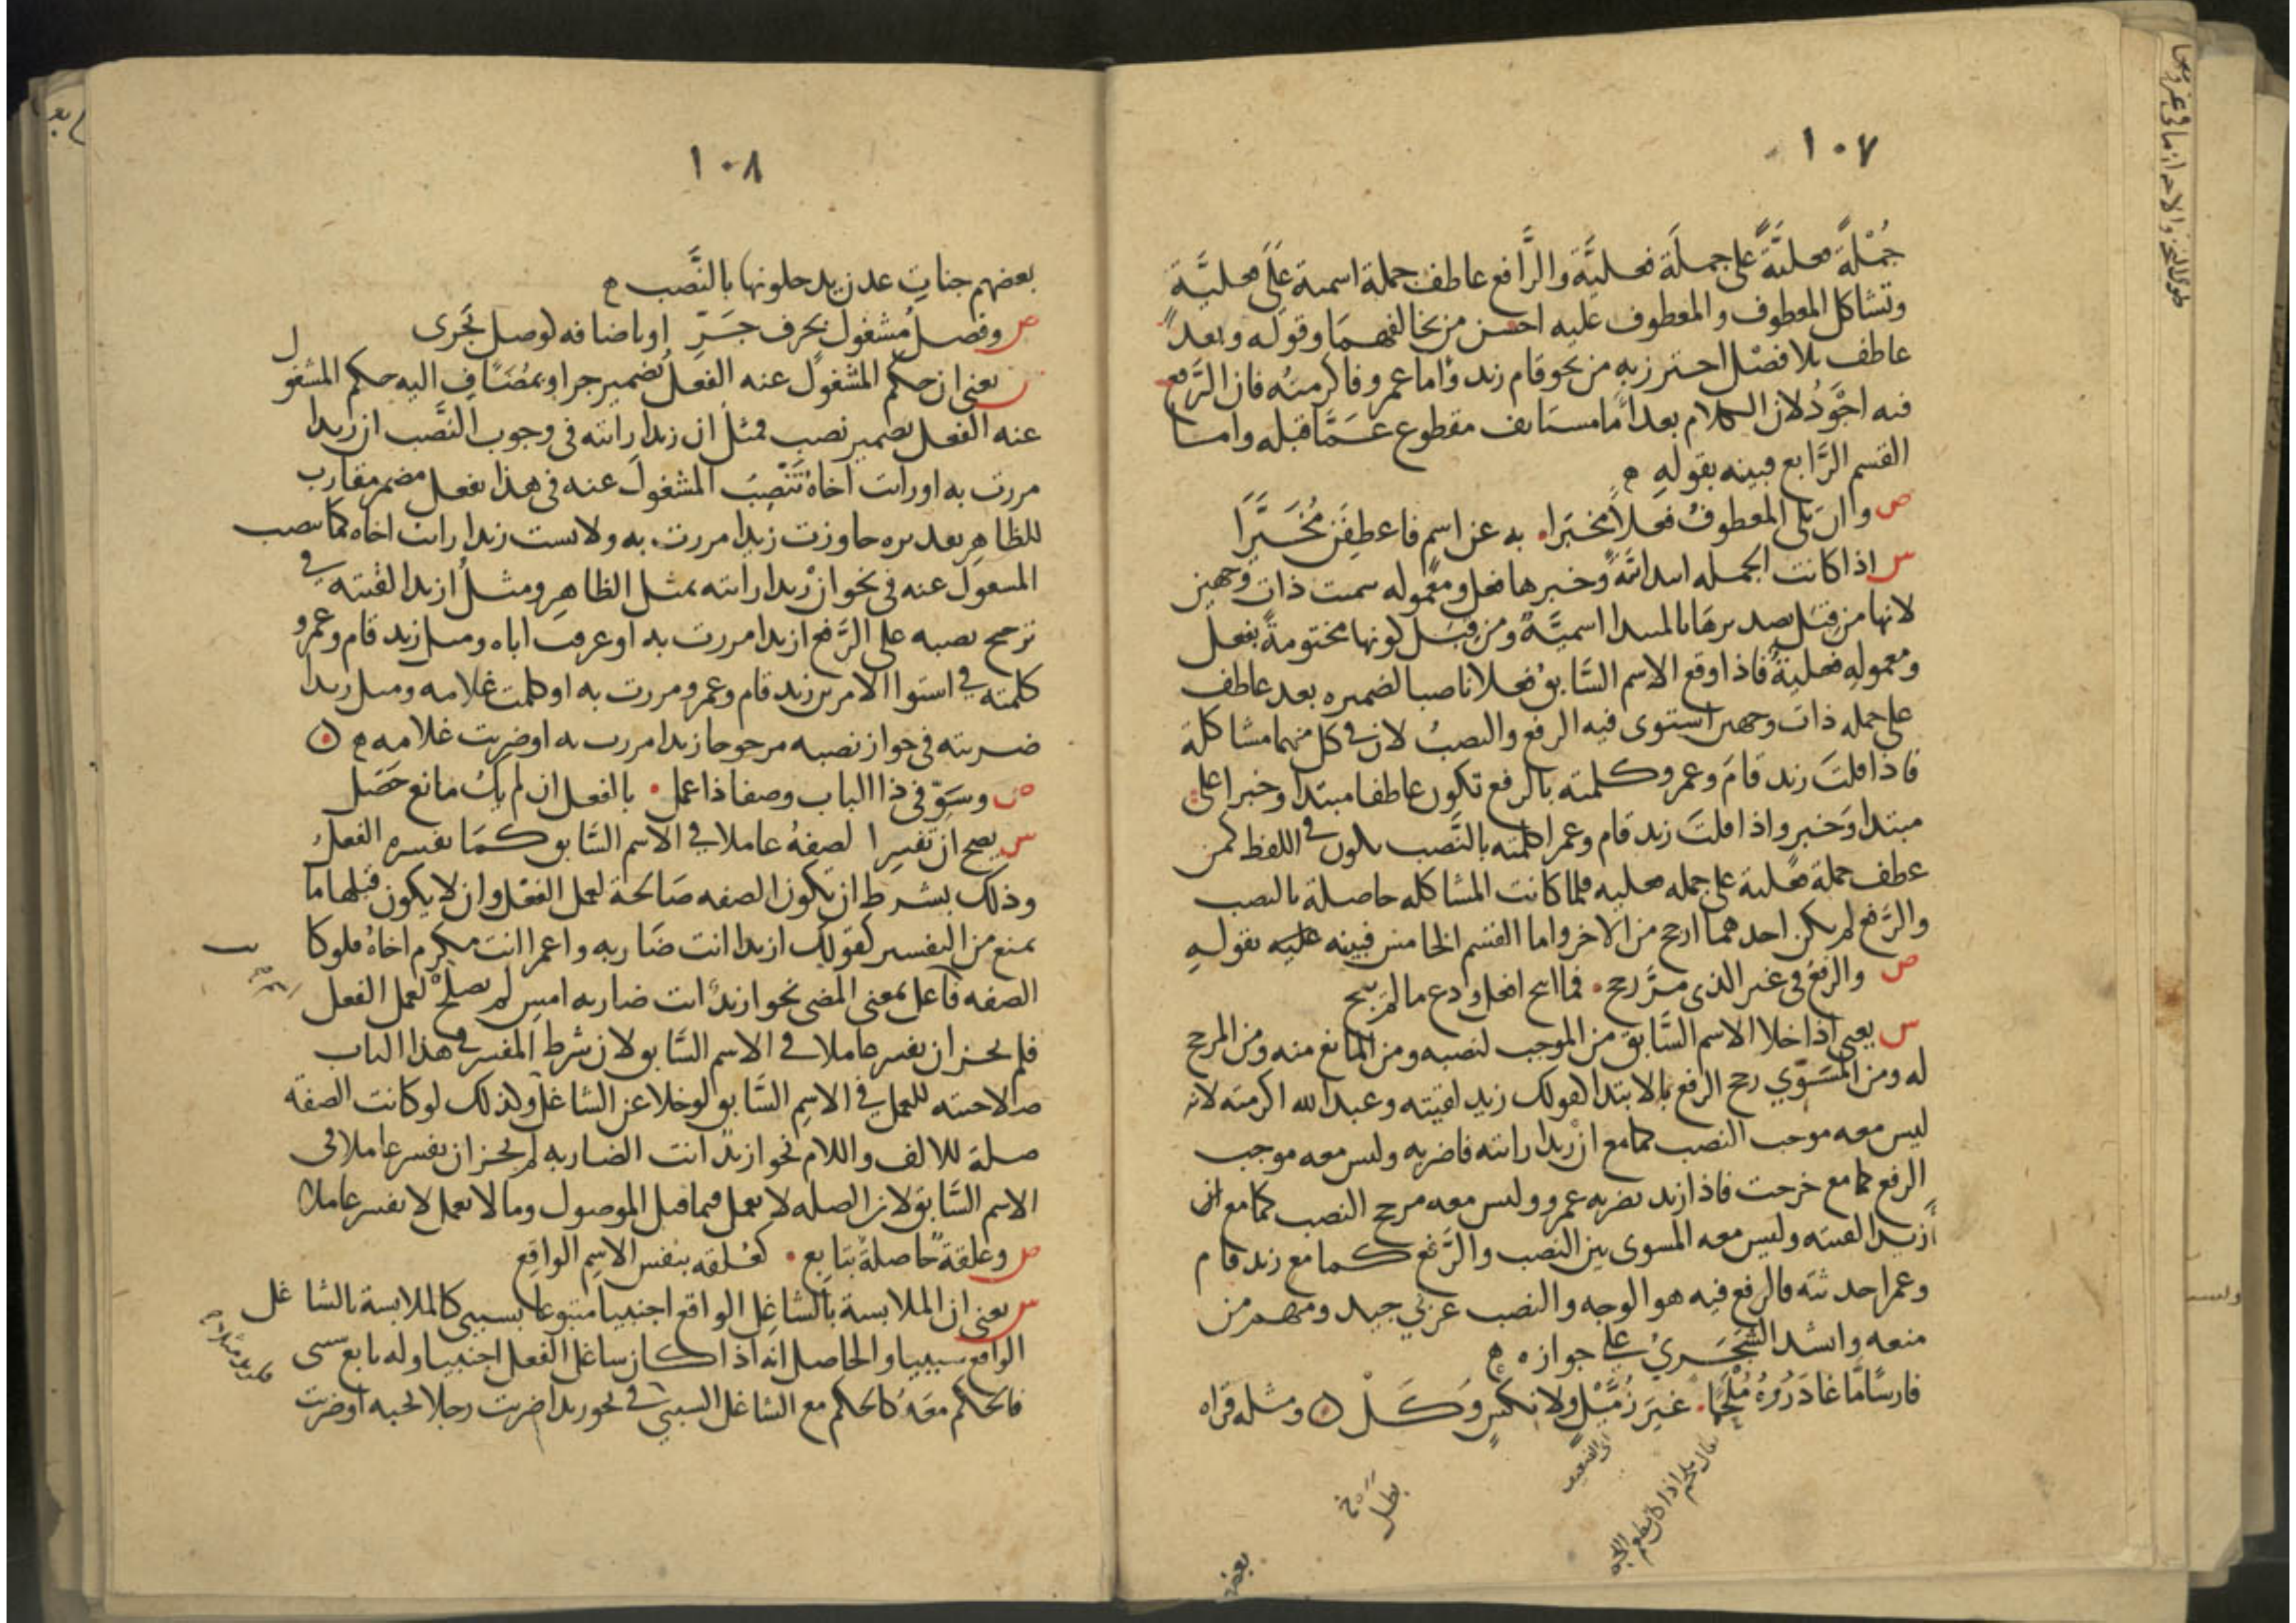 ١٠٧
جُمْلَةً فعليَّةً على جملَة فعليَّة والرَّافع عاطف جملة اسمية عَلَى فعليَّة
وتشاكل المعطوف والمعطوف عليه احسن من تخالفهمَا وقوله وبعد
عاطف بلا فصْل احترز به من نحو قام زيد وأما عمرو فاكرمتهُ فان الرَّفع
فيه اجْوَدُ لان الكلام بعد أمَّا مستانف مقطوع عَمَّا قبله واما
القسم الرَّابع فبينه بقوله ه
ص وان تلى المعطوفُ فعلاً مخبرا به عن اسم فاعطفَن مُخَيَّرَا
س اذا كانت الجمله ابتدائيَّةً وخبرها فعل ومعموله سميت ذات وجهين
لانها من قِبَل تصديرها بالمبتدا اسميَّةٌ ومن قِبَل كونها مختومةً بفعل
ومعمولِهِ فعليَّةٌ فاذا وقع الاسم السَّابقُ فعلا ناصبا لضميره بعد عاطف
على جمله ذات وجهين استوى فيه الرفع والنصبُ لان في كل منهما مشاكلة
فاذا قلتَ زيد قامَ وعمرو كلمته بالرفع تكون عاطفا مبتدا وخبرا على
مبتدا وَخبر واذا قلتَ زيد قام وعمرا كلمته بالنَّصب يكون في اللفظ كمن
عطف جملة فعْلية على جمله فعليه فلما كانت المشاكله حاصلة بالنصب
والرَّفع لم يكن احدهما ارجح من الاخر واما القسْم الخامس فبينه عليه بقولهِ
ص والرفعُ في غير الذي مرَّ رجح فما ابيح افعل ودع ما لم يبح
س يعنى اذا خلا الاسم السَّابق من الموجب لنصبه ومن المانع منه ومن المرجح
له ومن المُسَوّي رجح الرفع بالابتدا كقولك زيد لقيته وعبد الله اكرمته لانه
ليس معه موجب النصب كما مع ان زيدا رايته فاضربه وليس معه موجب
الرفع كما مع خرجت فاذا زيد يضربه عمرو وليس معه مرجح النصب كما مع
أزيدا لقيته وليس معه المسوى بين النصب والرَّفع كما مع زيد قام
وعمرا حدثته فالرفع فيه هو الوجه والنصب عربي جيد ومنهم من
منعه وانشد الشَّجَرِيُّ على جوازه ه
فارسًا مَّا غادَرُوهُ مُلْحَمًا غيَر زُمَّيْلٍ ولا نكسٍ وَكَلْ ومثله قراه
اى الضعيف
بطل
١٠٨
بعضهم جناتِ عدن يدخلونها بالنَّصب ه
ص وفصلُ مشغول بحرف جَرِّ او باضافه كوصل يَجرى
يعنى ان حكم المشغول عنه الفعل بضمير جر او بمُضَافٍ اليه حكم المشغول
عنه الفعل بضمير نصب فمثل ان زيدا رايته في وجوب النَّصب ان زيدا
مررت به او رايت اخاهُ تَنْصِبُ المشغولَ عنه في هذا بفعل مضمر مقارب
للظاهر تقديره جاوزت زيدا مررت به ولابست زيدا رايت اخاه كما ينصب
المشغول عنه في نحو ان زيدا رايته بمثل الظاهِر ومثلُ ازيدا لقيته في
ترجح نصبه على الرَّفع ازيدا مررت به او عرفت اباه ومثل زيد قام وعمرو
كلمته في استوا الامرين زيد قام وعمرو مررت به او كلمت غلامه ومثل زيدا
ضربته في جواز نصبه مرجوحا زيدا مررت به او ضربت غلامه ه
ص وسَوِّ في ذا الباب وصفا ذا عمل بالفعل ان لم يكُ مانع حَصَل
س يصح ان تفسر الصفهُ عاملا في الاسم السَّابق كمَا يفسره الفعلُ
وذلك بشرط ان تكون الصفه صَالحة لعمل الفعْل وان لا يكون قبلها ما
يمنع من التفسير كقولك ازيدا انت ضَاربه واعمرا انت مكرم اخاهُ فلو كانت
الصفه فاعل بمعنى المضى نحو ازيدٌ انت ضاربه امسِ لم يصلحْ لعمل الفعل
فلم يجز ان يفسر عاملا في الاسم السَّابق لان شرط المفسر في هذا الباب
صلاحيته للعمل في الاسم السَّابق لو خلا عن الشاغل ولذلك لو كانت الصفة
صلة للالف واللام نحو ازيدٌ انت الضاربه لم يجز ان يفسر عاملا في
الاسم السَّابق لان الصله لا تعمل فيما قبل الموصول وما لا يعمل لا يفسر عاملا
ص وعلقةٌ حَاصلةٌ بتابِع كعُلقه بنفس الاسِم الواقِع
س يعنى ان الملابسة بالشاغِل الواقع اجنبيا متبوعا بسببى كالملابسة بالشاغل
الواقع سببيا والحاصل انَّه اذا كان شاغل الفعل اجنبيا وله تابع سببى
فالحكم معَهُ كالحكم مع الشاغل السببيّ في نحو زيدا ضربت رجلا يحبه او ضربت